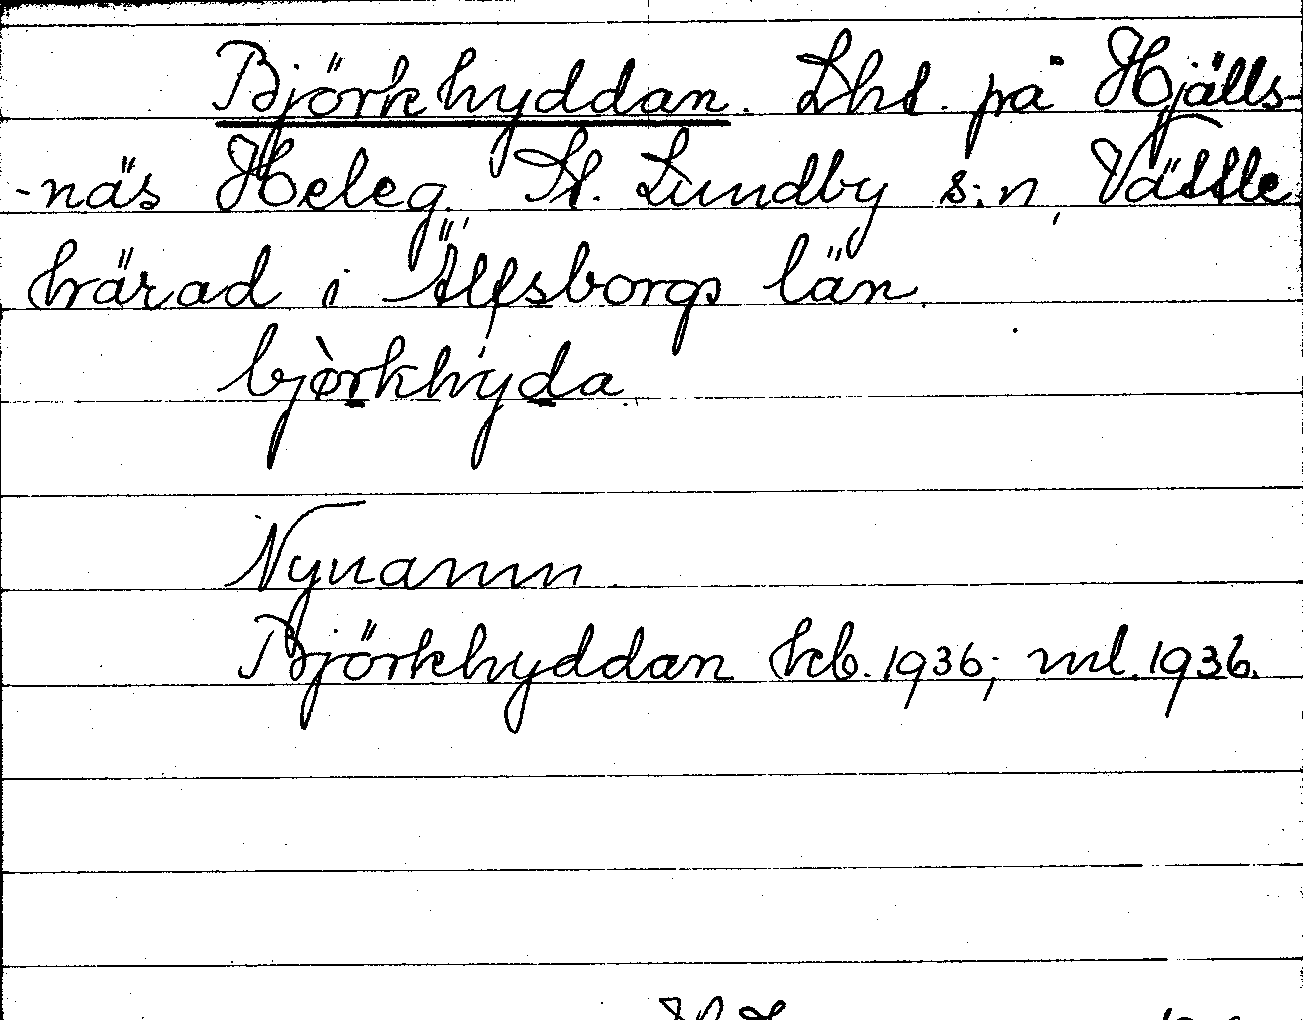 Björkhyddan. Lht. på Hjälls-
-näs Heleg. St. Lundby s:n, Vättle
härad i Älfsborgs län.
bjòrkhyda.
Nynamn.
Björkhyddan kb. 1936; ml. 1936.